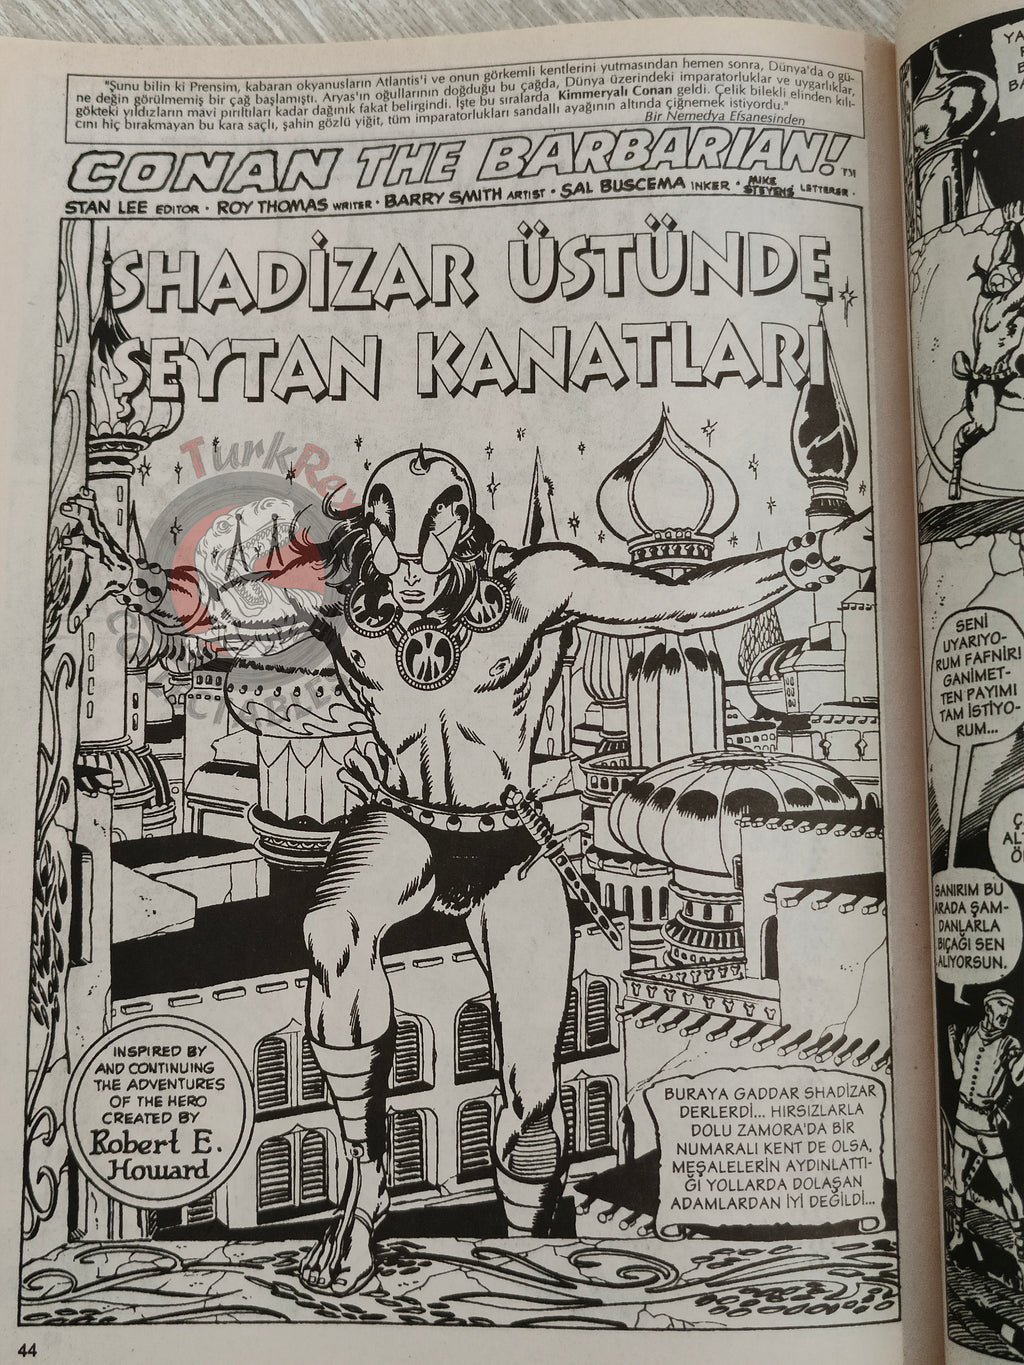 "Şunu bilin ki Prensim, kabaran okyanusların Atlantis'i ve onun görkemli kentlerini yutmasından hemen sonra, Dünya'da o gü-
ne değin görülmemiş bir çağ başlamıştı. Aryas'ın oğullarının doğduğu bu çağda, Dünya üzerindeki imparatorluklar ve uygarlıklar,
gökteki yıldızların mavi pırıltıları kadar dağınık fakat belirgindi. İşte bu sıralarda Kimmeryalı Conan geldi. Çelik bilekli elinden kılı-
cını hiç bırakmayan bu kara saçlı, şahin gözlü yiğit, tüm imparatorlukları sandallı ayağının altında çiğnemek istiyordu."
Bir Nemedya Efsanesinden
CONAN THE BARBARIAN! TM
STAN LEE EDITOR • ROY THOMAS WRITER • BARRY SMITH ARTIST • SAL BUSCEMA INKER • MIKE STEVENS LETTERER •
SHADİZAR ÜSTÜNDE
ŞEYTAN KANATLARI
TurkRex
INSPIRED BY
AND CONTINUING
THE ADVENTURES
OF THE HERO
CREATED BY
Robert E.
Howard
BURAYA GADDAR SHADİZAR
DERLERDİ... HIRSIZLARLA
DOLU ZAMORA'DA BİR
NUMARALI KENT DE OLSA,
MEŞALELERİN AYDINLATTI-
ĞI YOLLARDA DOLAŞAN
ADAMLARDAN İYİ DEĞİLDİ...
44
SENİ
UYARIYO-
RUM FAFNİR!
GANİMET-
TEN PAYIMI
TAM İSTİYO-
RUM...
SANIRIM BU
ARADA ŞAM-
DANLARLA
BIÇAĞI SEN
ALIYORSUN.